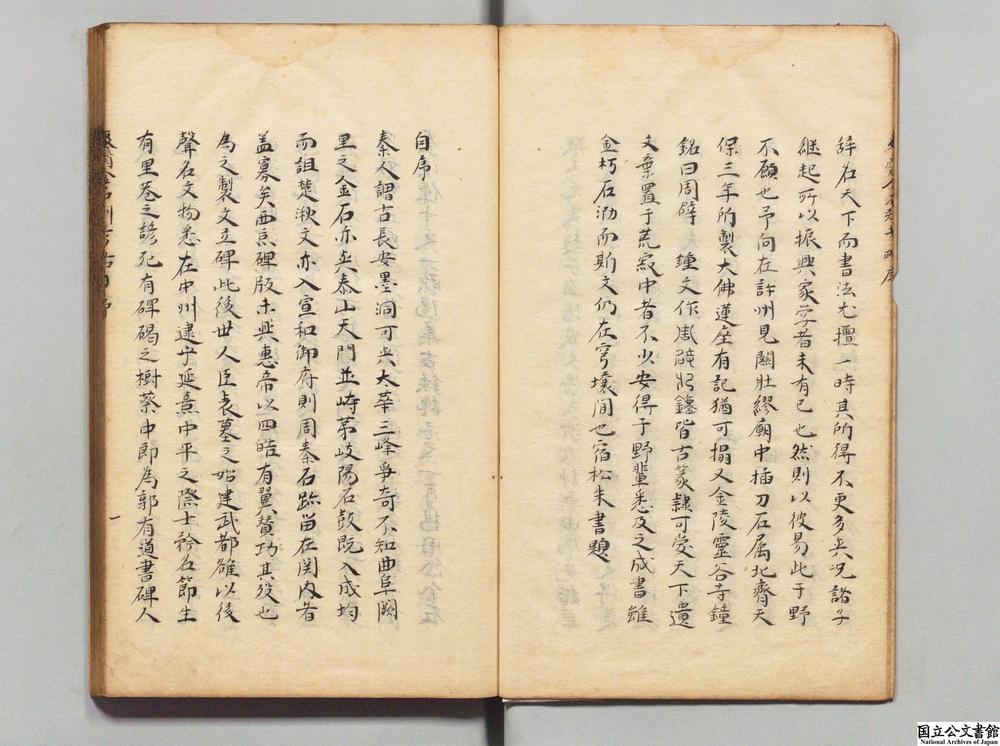 辭名天下而書法尤擅一時其所得不更多矣況諸子
継起所以振興家学者未有已也然則以彼易此于野
不願也予向在許州見關壯繆廟中插刀石属北齊天
保三年所製大佛蓮座有記猶可搨又金陵靈谷寺鐘
銘曰周辟 鐘文作周辟 鐘皆古篆隷可愛天下遺
文棄置于荒寂中者不少安得于野輩悉及之成書雖
金朽石泐而斯文仍在穹壤间也宿松朱書題
自序
秦人謂古長安墨洞可与太華三峰爭奇不知曲阜闕
里之金石亦与泰山天門並峙苐岐陽石鼓既入成均
而詛楚湫文亦入宣和御府則周秦石跡畄在関内者
盖寡矣西京碑版未興惠帝以四皓有翼賛功其殁也
為之製文立碑此後世人臣表墓之始建武都雒以後
聲名文物悉在中州逮乎延熹中平之際士矜名節生
有里巷之諺死有碑碣之樹蔡中郎為郭有道書碑人
一
国立公文書館
National Archives of Japan